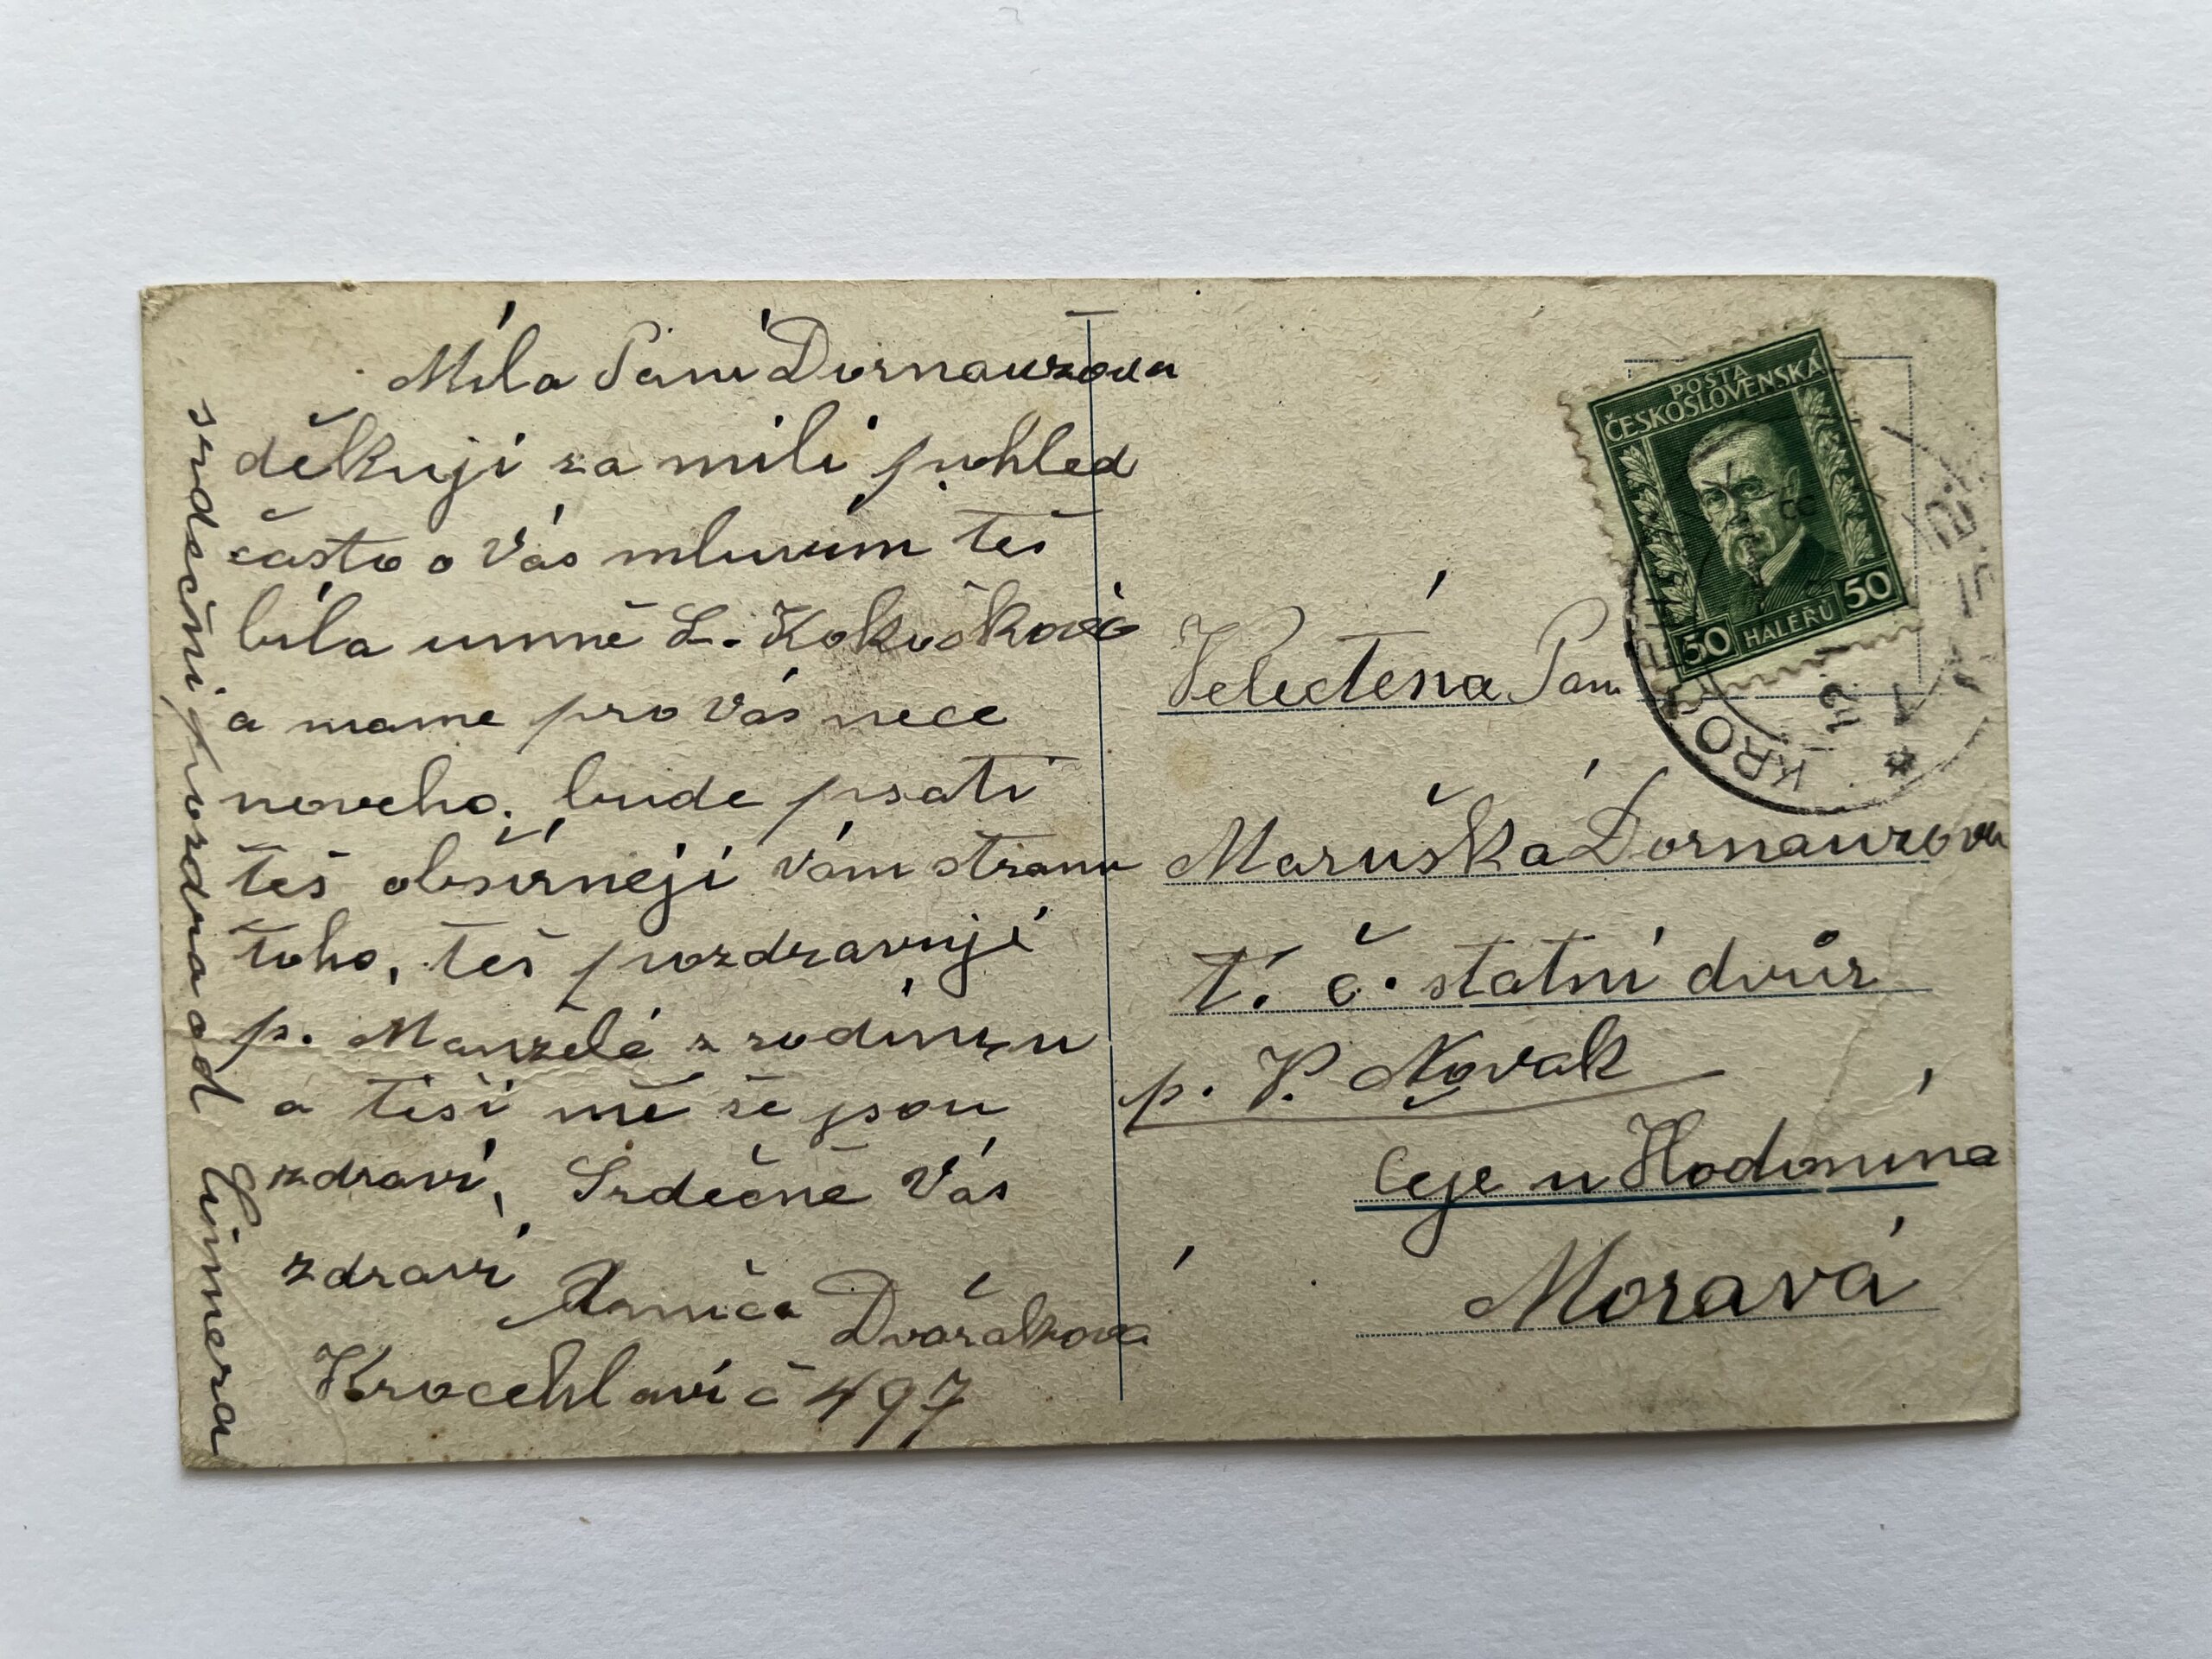 Míla Paní Dornauzova
děkuji za milí pohled
často o Vás mluvim teš
bíla umně L. Kokošková
a mame pro Vás nece
noveho. bude psati
teš obšírněji vám stranu
toho, teš pozdravuji
p. Manzelé z rodinzu
a těší mě še jsou
zdraví, Srdečně Vás
zdraví Anniča Dvořakova
Krocehlaví č 497
srdeční pozdrava od
POSTA
ČESKOSLOVENSKÁ
50 HALÉŘŮ 50
KRO
Veledtěná Pani
Maruška Dornauzova
t. č. statní dvůr
p. V. Novak
Ceje u Hodonína
Moravá